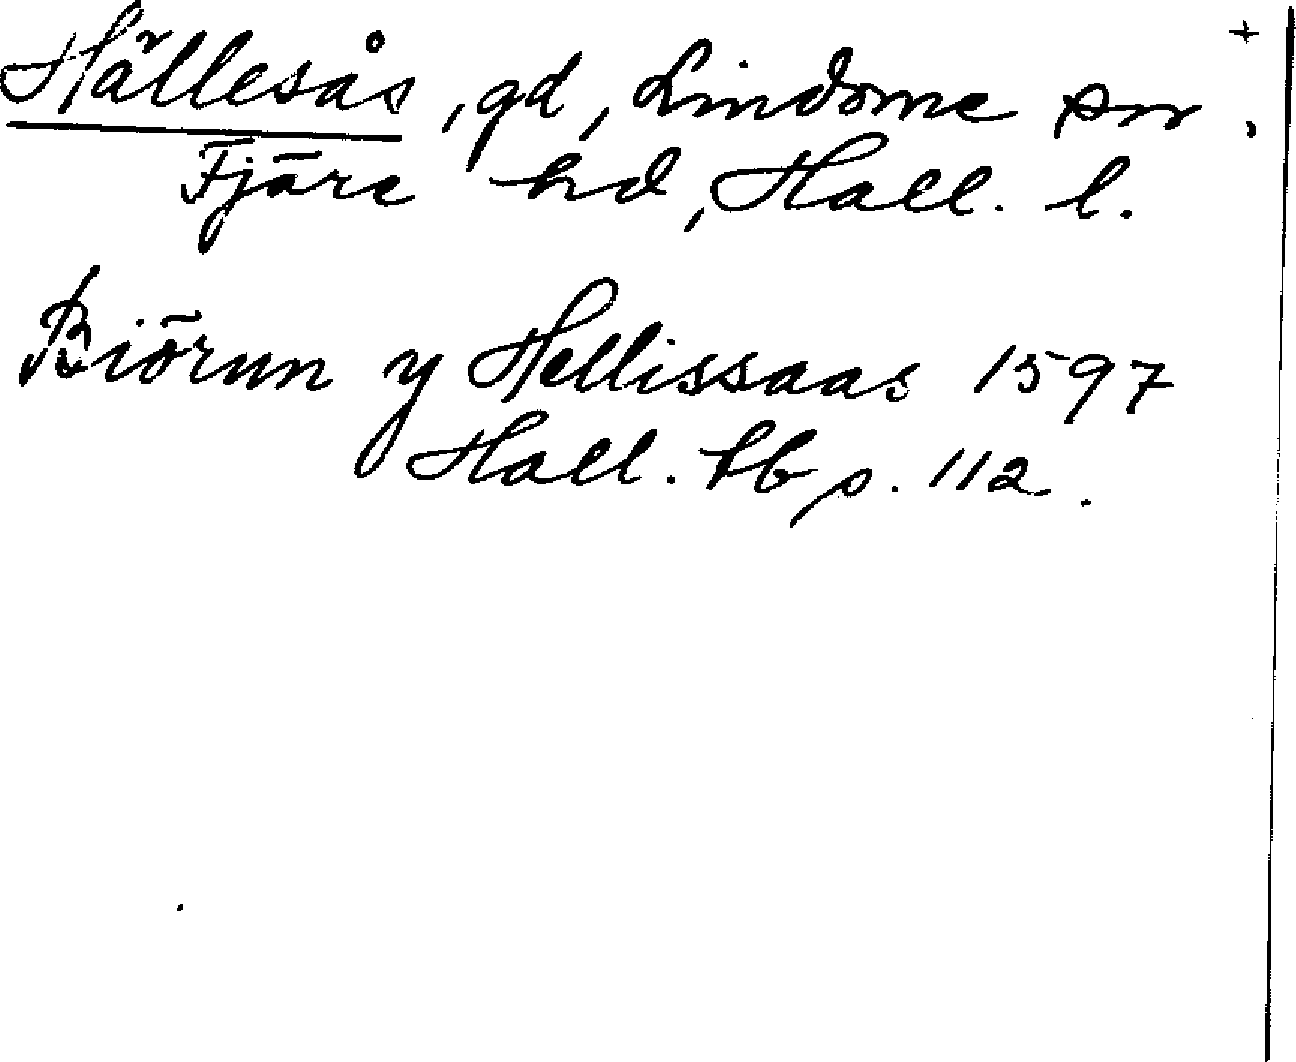 +
Hällesås, gd, Lindome sn.
Fjäre hd, Hall. l.
Biörun y Hellissaas 1597
Hall. lb p. 112.